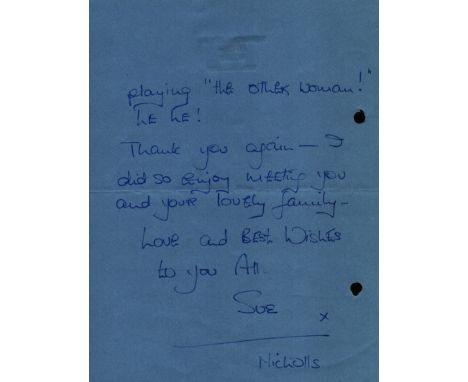 playing "the other woman!"
he he!
Thank you again — I
did so enjoy meeting you
and your lovely family —
Love and Best Wishes
to you All.
Sue
x
Nicholls